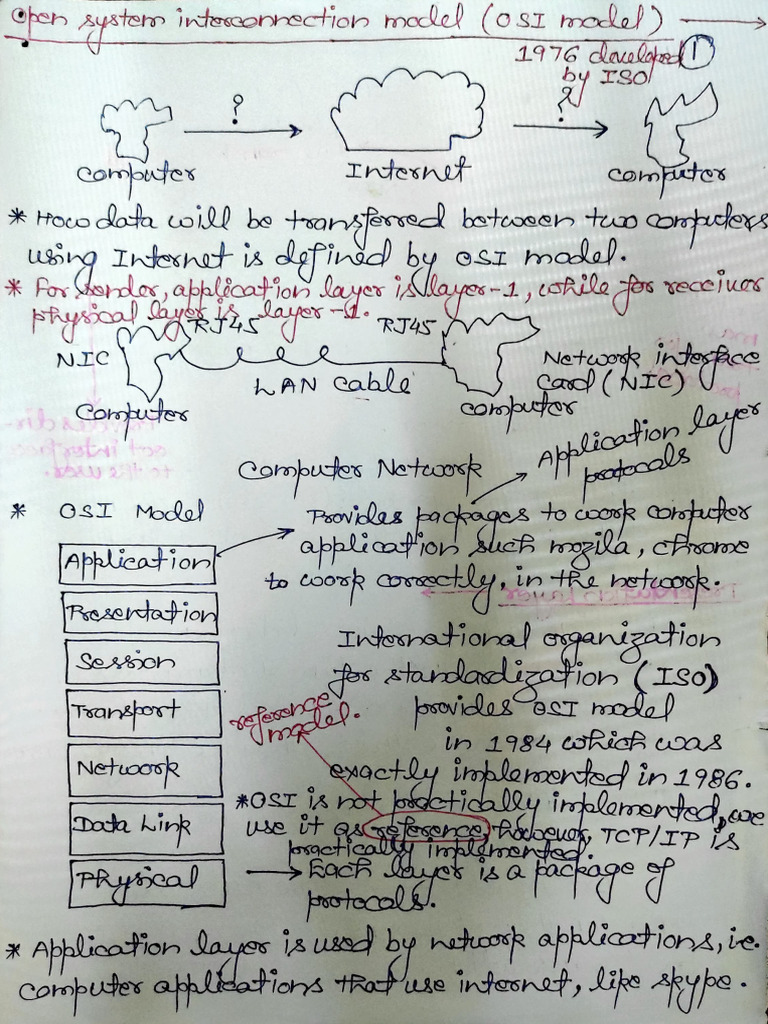 Open system interconnection model (OSI model)
1976 developed 1
by ISO
? ?
Computer Internet computer
* How data will be transferred between two computers
using Internet is defined by OSI model.
* For sender, application layer is layer-1, while for receiver
physical layer is layer-1.
RJ45 RJ45
NIC
LAN cable
Network interface
card (NIC)
Computer computer
Computer Network
Application layer
protocols
* OSI Model
Provides packages to work computer
application such mozila, chrome
to work correctly, in the network.
Application
Presentation
Session
Transport
Network
Data Link
Physical
International organization
for standardization (ISO)
provides OSI model
in 1984 which was
exactly implemented in 1986.
reference
model.
* OSI is not practically implemented, we
use it as reference, however, TCP/IP is
practically implemented.
Each layer is a package of
protocols.
* Application layer is used by network applications, i.e.
computer applications that use internet, like skype.